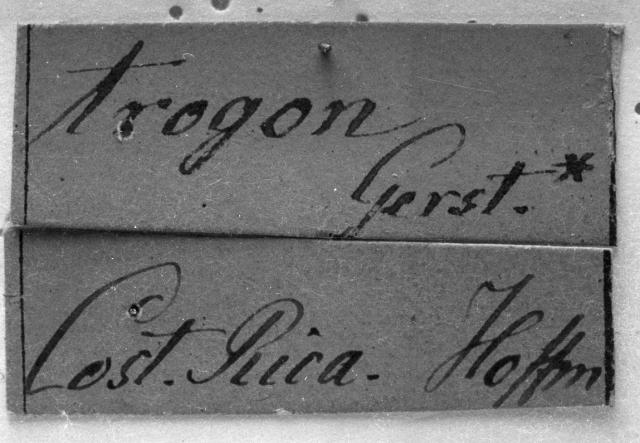 trogon
Gerst.*
Cost. Rica. Hoffm